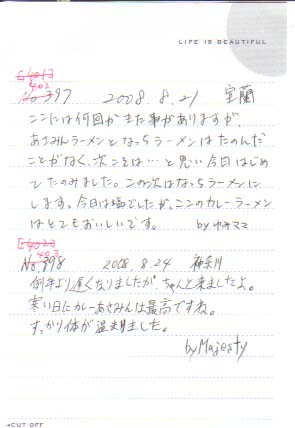 LIFE IS BEAUTIFUL
[401]
402
No.397 2008.8.21 室蘭
ここには何回かきた事がありますが、
あさみんラーメンとなっちラーメンはたのんだ
ことがなく、次こそは…と思い今日はじめ
てたのみました。この次はなっちラーメンに
します。今日は塩でしたが、ここのカレーラーメン
はとてもおいしいです。 by ゆみママ
[402]
403
No.398 2008.8.24 神奈川
例年より遅くなりましたが、ちゃんと来ましたよ。
寒い日にカレーあさみんは最高ですね。
すっかり体が温まりました。
by Majesty
◂CUT OFF